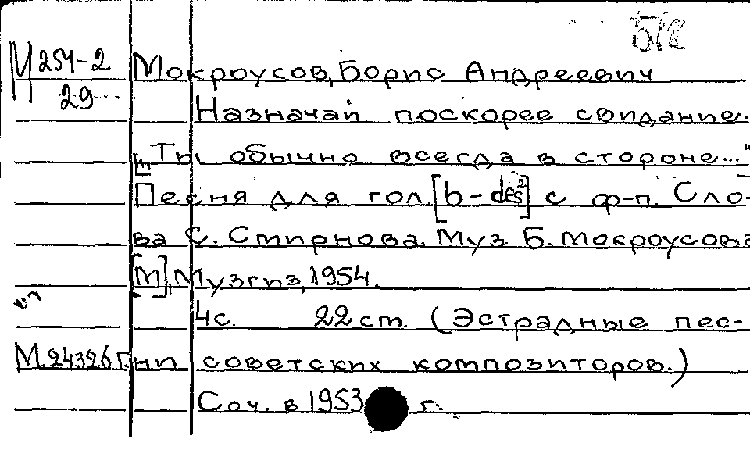 М 254-2
29
Мокроусов, Борис Андреевич
Назначай поскорее свидание.
"Ты обычно всегда в стороне..."
Песня для гол. [b-des²] с ф-п. Сло-
ва С. Смирнова. Муз Б. Мокроусова
[М], Музгиз, 1954.
4с. 22 cm. (Эстрадные пес-
ни советских композиторов.)
М. 24326 г.
Соч. в 1953 г.